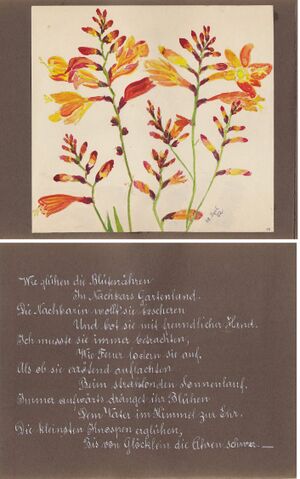 Wie glühen die Blütenähren
In Nachbars Gartenland.
Die Nachbarin wollt' sie bescheren
Und bot sie mit freundlicher Hand.
Ich musste sie immer betrachten,
Wie Feuer lodern sie auf,
Als ob sie errötend auflachten
Beim strahlenden Sonnenlauf.
Immer aufwärts dränget ihr Blühen
Dem Vater im Himmel zur Ehr.
Die kleinsten Knospen erglühen,
Bis von Glöcklein die Ähren schwer.